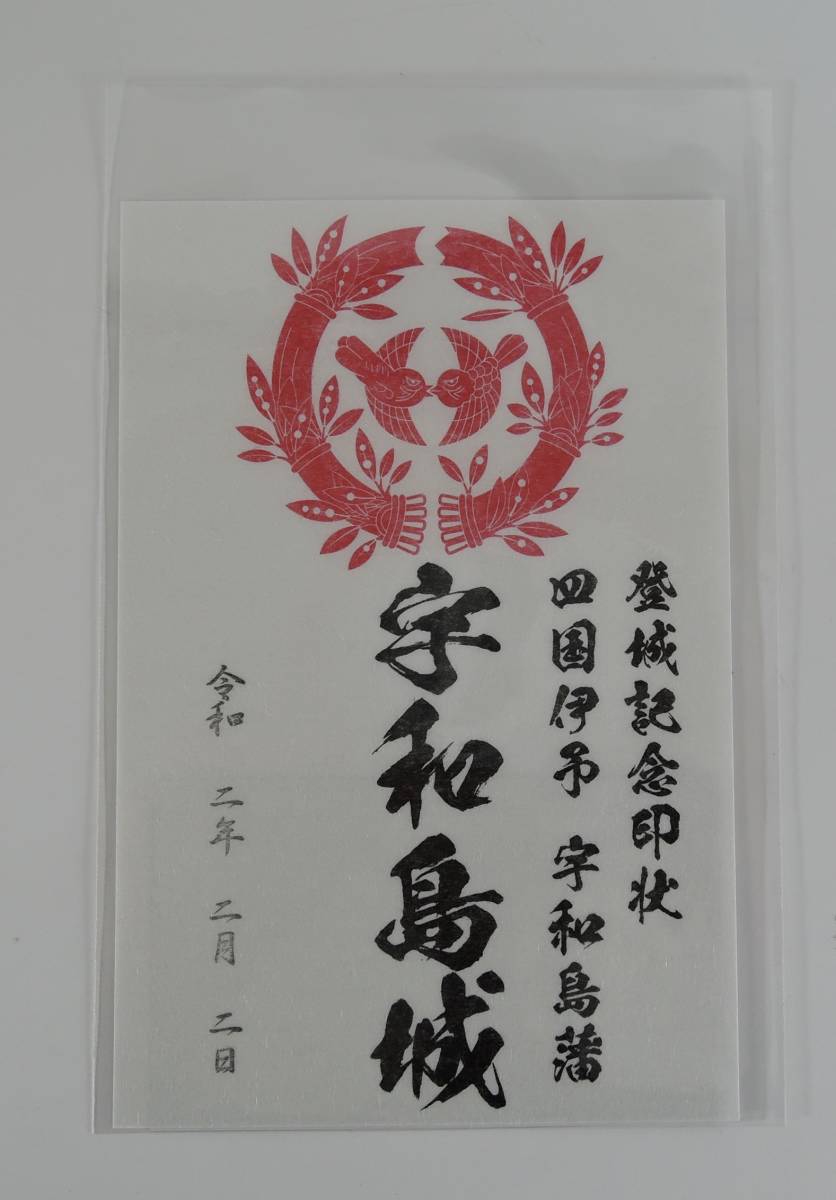 登城記念印状
四国伊予 宇和島藩
宇和島城
令和 二年 二月 二日